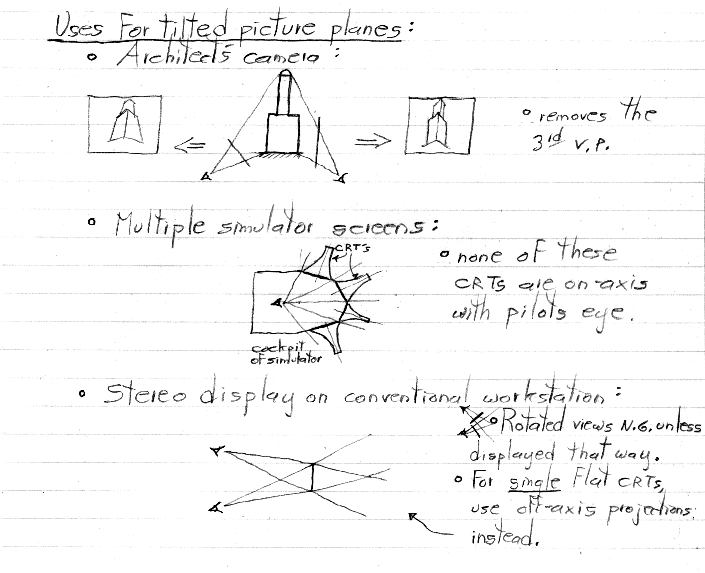 Uses For tilted picture planes:
• Architect's camera:
• removes the
3rd V.P.
• Multiple simulator screens:
CRT's
• none of these
CRTs are on-axis
with pilots eye.
cockpit
of simulator
• Stereo display on conventional workstation:
• Rotated views N.G. unless
displayed that way.
• For single Flat CRTs,
use off-axis projections
instead.